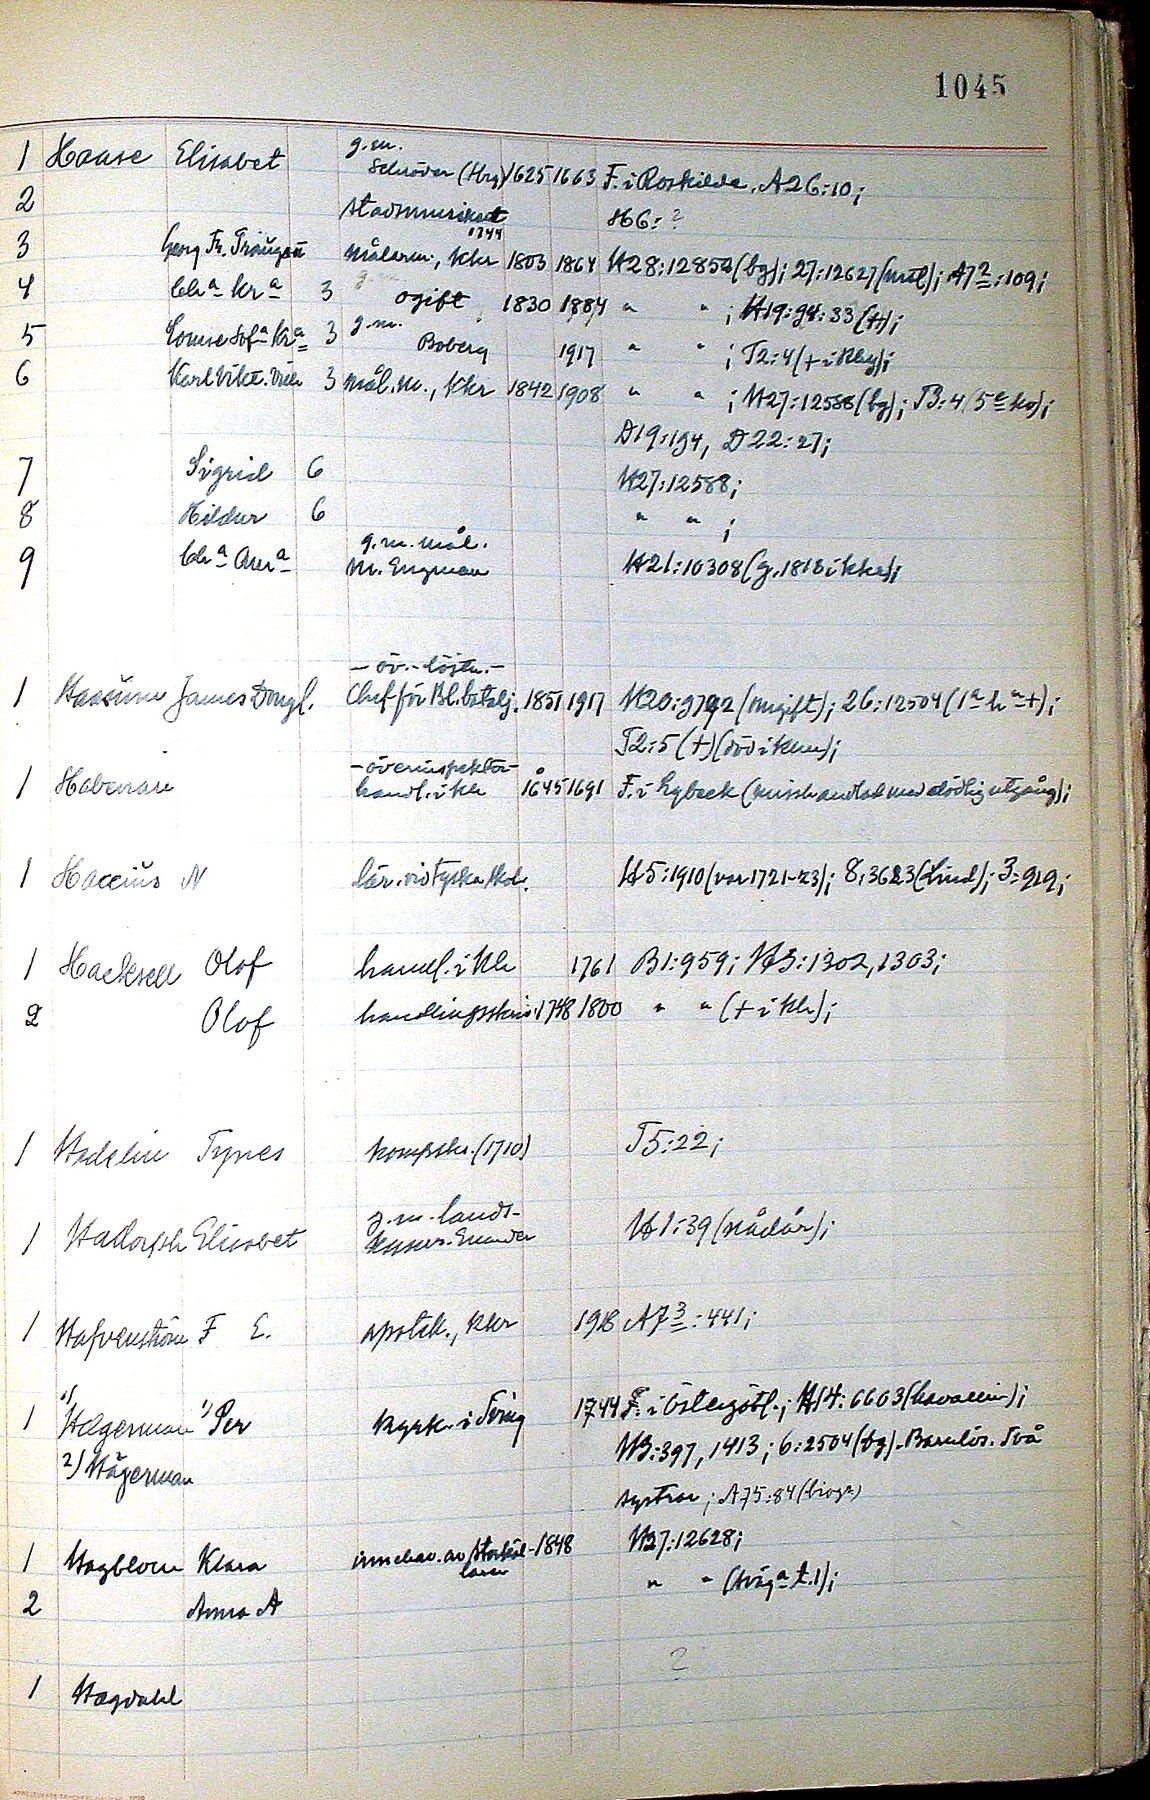 1045
g.m.
1 Haase Elisabet Schröder (Hbg) 1625 1663 F. i Roskilde, A26:10;
2 stadsmusikant 1744 H6:?
3 Georg Fr. Traugott målarm., Khr 1803 1864 H28:12852 (bg); 27:12627 (mål); A7²:109;
4 Chª Krª 3 ogift 1830 1884 " " ; H19:94:33 (+);
5 Louise Sofª Krª 3 g.m. Boberg 1917 " " ; T2:4 (+ i Kbg);
6 Karl Vikt. 3 mål.m., Khr 1842 1908 " " ; H27:12588 (bg); B:4
D19:194, D22:27;
7 Sigrid 6 H27:12588;
8 Hildur 6 " " ;
9 Chª g.m. mål.
m. Engman H21:10308 (g. 1818 i
- öv.-löjtn. -
1 James Dougl. Chef för Bl. batalj. 1851 1917 H20:9792 (omgift); 26:12504 (1ª hª +);
T2:5 (+) (död i
- överinspektör -
1 handl. i Kh 1645 1691 F. i Lybeck (misshandlad med dödlig utgång);
1 Haccius N lär. vid tyska skol. H5:1910 (var 1721-23); 8:3623 (Lind); 3:919;
1 Hacksell Olof handl. i Kh 1761 B1:959; H3:1302, 1303;
2 Olof handlingsskriv. 1748 1800 " " (+ i Kh);
1 Hadelin (1710) T5:22;
1 Hadorph Elisabet g.m. lands-
H1:39 (nådår);
1 Hafvenström F E. apotek., Khr 1918 A7³:441;
1 1) Hagerman 1) Per kyrk. i Tving 1744 F. i Östergötl.; H14:6603 (Cavallin);
2) Hägerman H3:397, 1413; 6:2504 (bg). Barnlös. Två
systrar; A75:84 (biogr.)
1 Hagblom Klara innehav. av 1848 H27:12628;
2 Anna A " " (t. 1);
?
1 Hagdahl